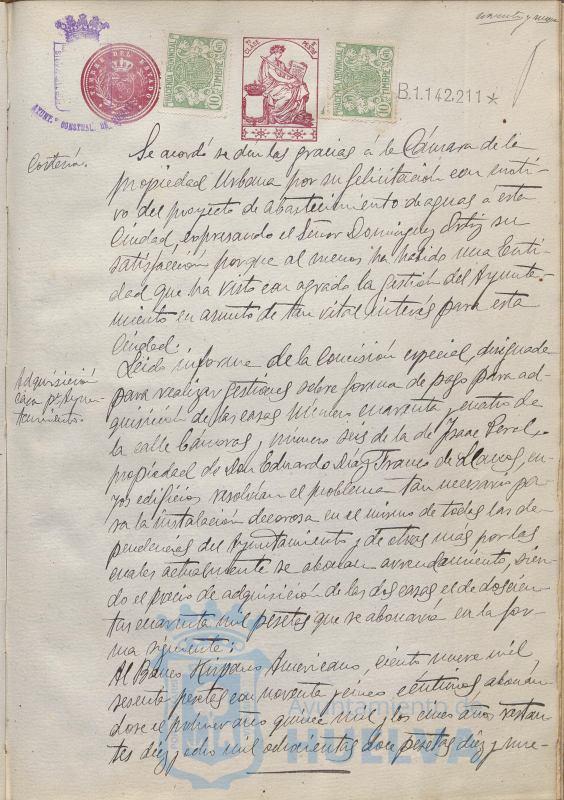 noventa y nueve
TIMBRE DEL ESTADO
AYUNT.º CONSTNAL. DE
ESPAÑA MOVIL
10 CTS TIMBRE
CLASE
PESETAS
ESPAÑA MOVIL
10 CTS TIMBRE
B.1.142.211*
Cortesía.
Se acordó se den las gracias á la Cámara de la
propiedad Urbana por su felicitación con moti-
vo del proyecto de abastecimiento de aguas á esta
Ciudad, expresando el Señor Dominguez Ortiz su
satisfacción porque al menos ha habido una Enti-
dad que ha visto con agrado la gestión del Ayunta-
miento en asunto de tan vital interés para esta
Ciudad.
Adquisición
casa pª Ayun-
tamiento.
Leido informe de la Comisión especial, designada
para realizar gestiones sobre forma de pago para ad-
quisición de las casas número cuarenta y cuatro de
la calle Cánovas y número seis de la de Isaac Peral,
propiedad de Don Eduardo Díaz Franco de Llanos, cu-
yos edificios resolvían el problema tan necesario pa-
ra la instalación decorosa en el mismo de todas las de-
pendencias del Ayuntamiento y de otras mas por las
cuales actualmente se abonan arrendamiento, sien-
do el precio de adquisición de las dos casas el de doscien-
tas cuarenta mil pesetas que se abonaría en la for-
ma siguiente:
Al Banco Hispano Americano, ciento nueve mil
sesenta pesetas con noventa y cinco centimos, abonan-
dose el primer año quince mil y los cinco años restan-
tes diez y ocho mil ochocientas doce pesetas diez y nue-
Ayuntamiento de
HUELVA